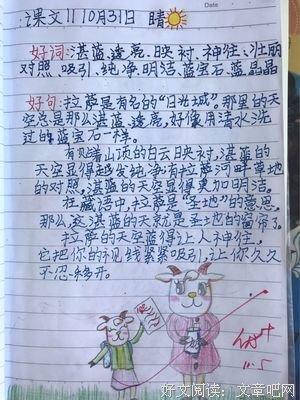 Date
课文11 10月31日 晴
好词:湛蓝、透亮、映衬、神往、壮丽
对照、吸引、纯净、明洁、蓝宝石、蓝晶晶
好句:拉萨是有名的“日光城”。那里的天
空总是那么湛蓝、透亮,好像用清水洗
过的蓝宝石一样。
有贴着山顶的白云映衬,湛蓝的
天空显得越发纯净;有拉萨河畔草地
的对照,湛蓝的天空显得更加明洁。
在藏语中,拉萨是“圣地”的意思,
那么,这湛蓝的天就是圣地的窗帘了。
拉萨的天空蓝得让人神往,
它把你的视线紧紧吸引,让你久久
不忍移开。
11.5
好文阅读:文章吧网